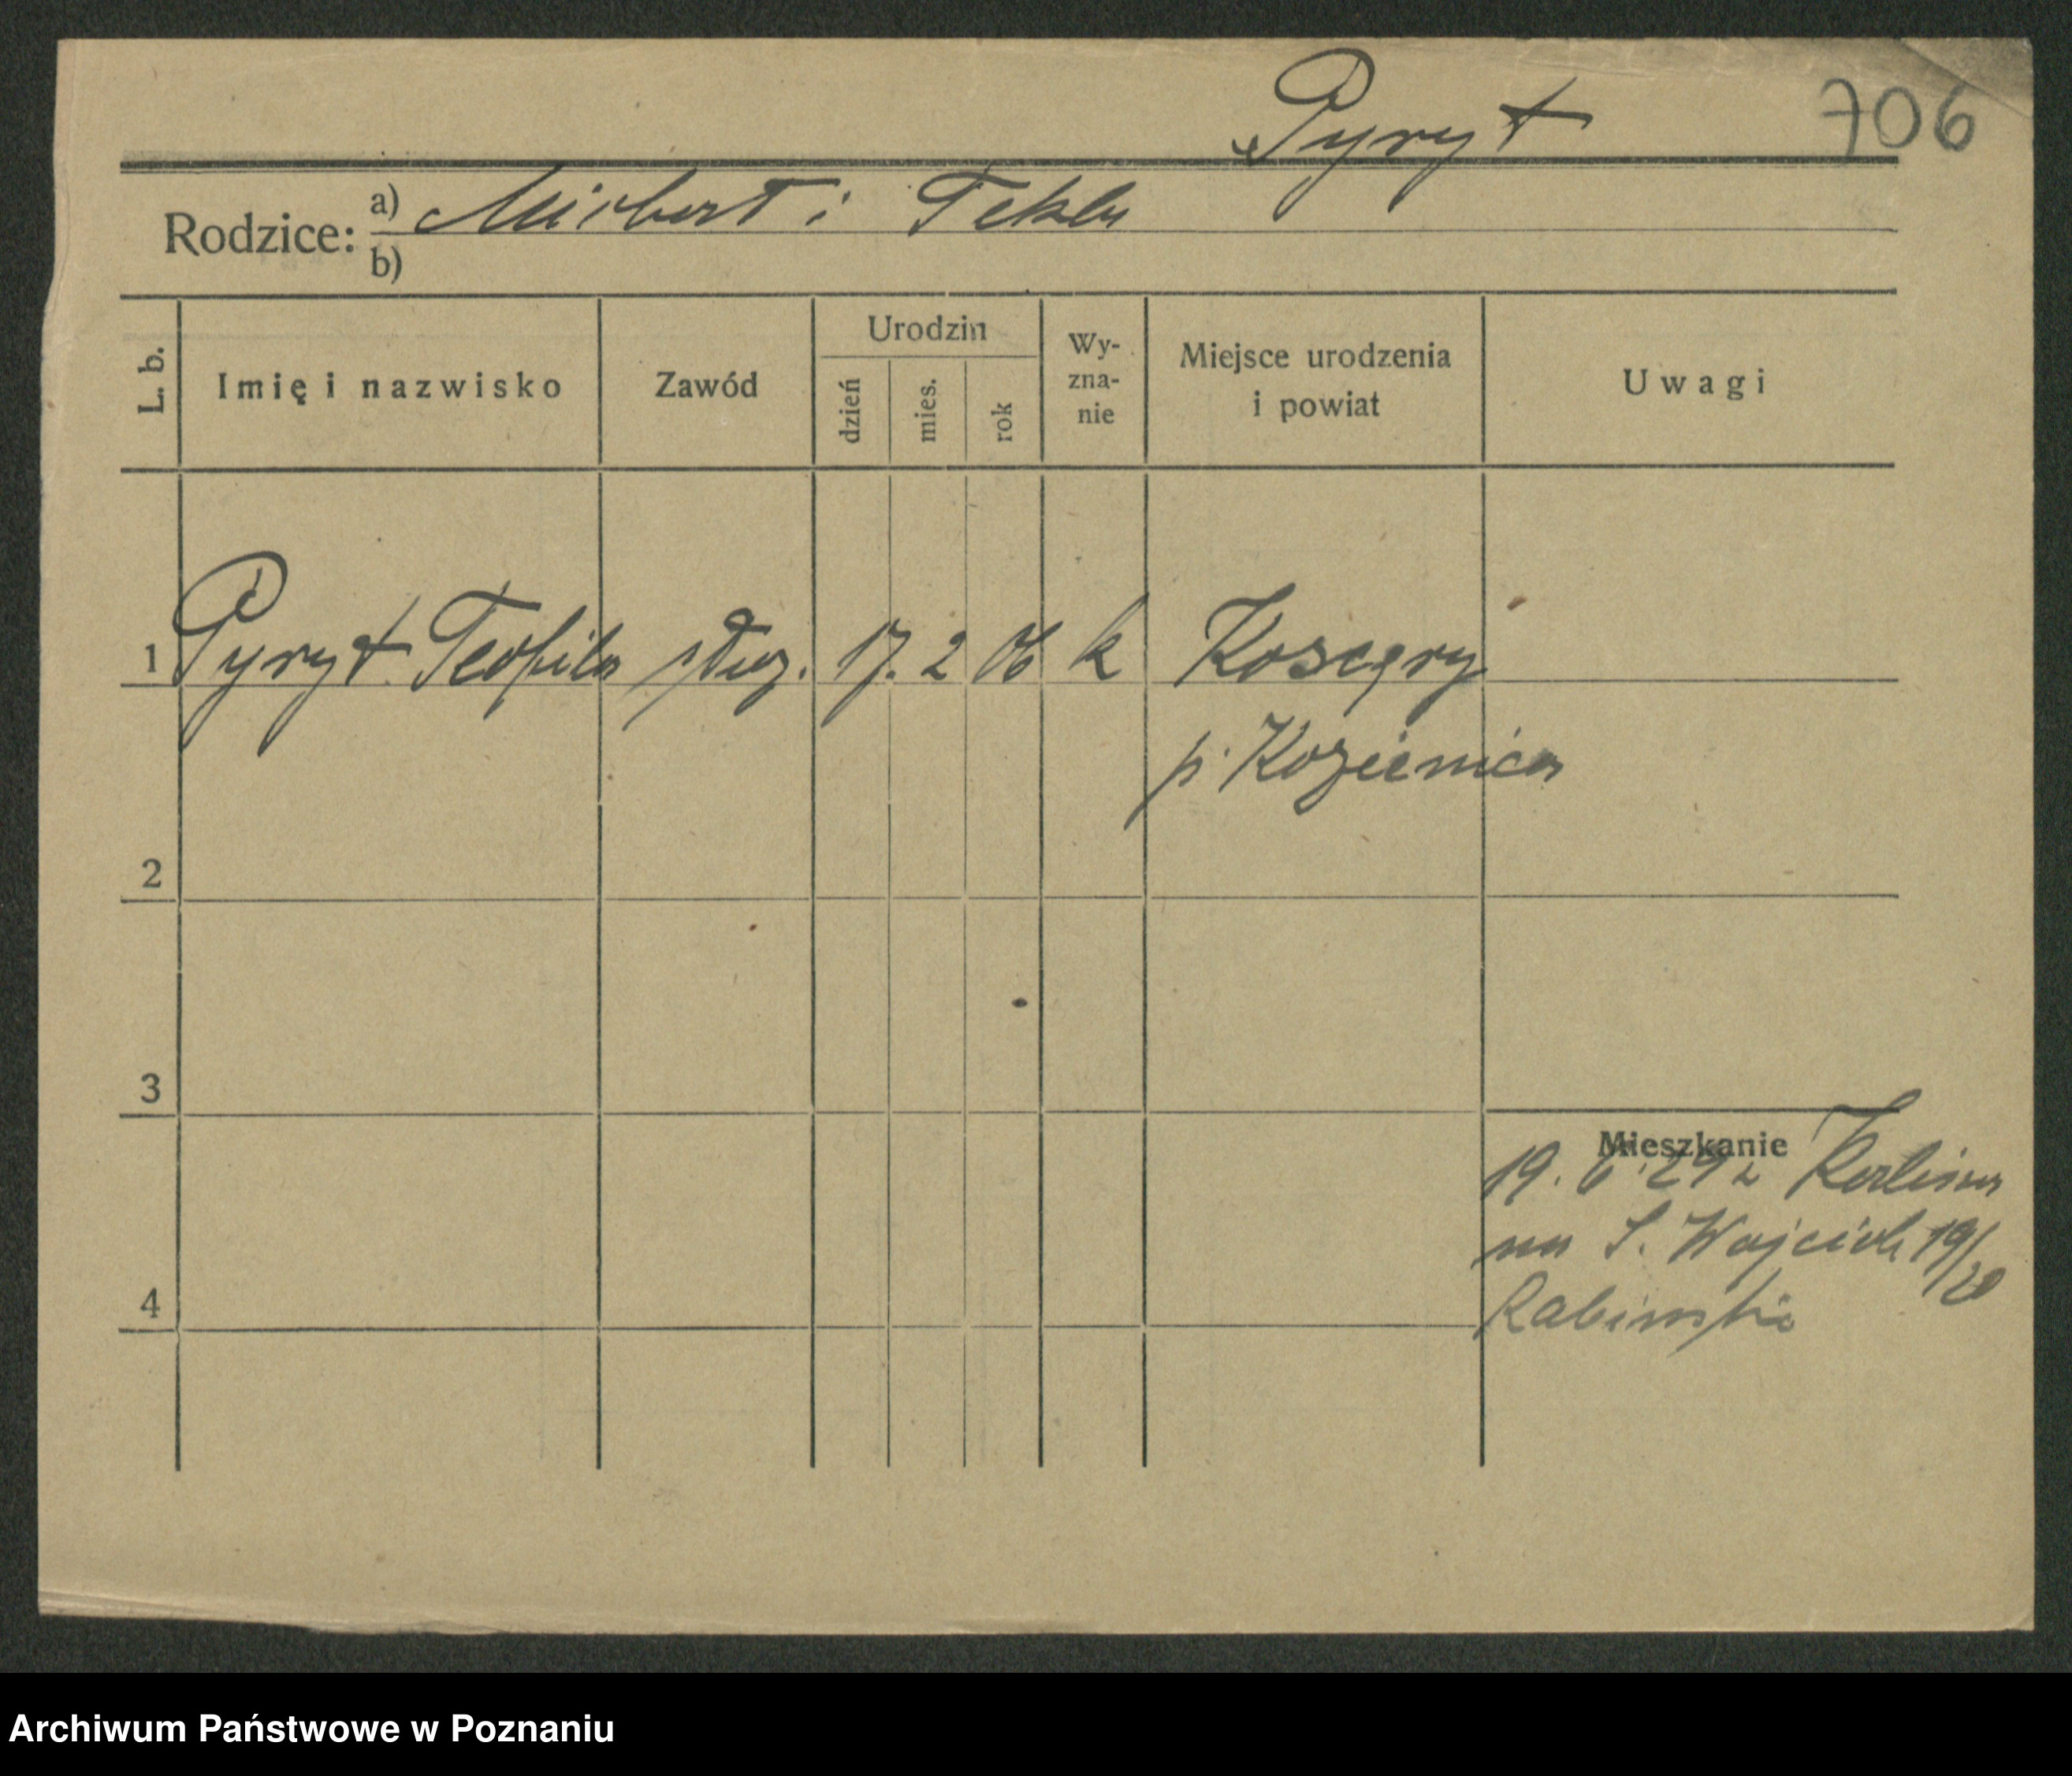 Pyryt
706
Rodzice: a) i Tekla
b)
L. b.
Imię i nazwisko
Zawód
Urodzin
dzień
mies.
rok
Wy-
zna-
nie
Miejsce urodzenia
i powiat
Uwagi
1 Pyryt Teofila służ. 17. 2 06 k
p. Kozienica
2
3
4
Mieszkanie
19. 6. 29 z
na Ś. Wojciech 19/20
Rabinski
Archiwum Państwowe w Poznaniu